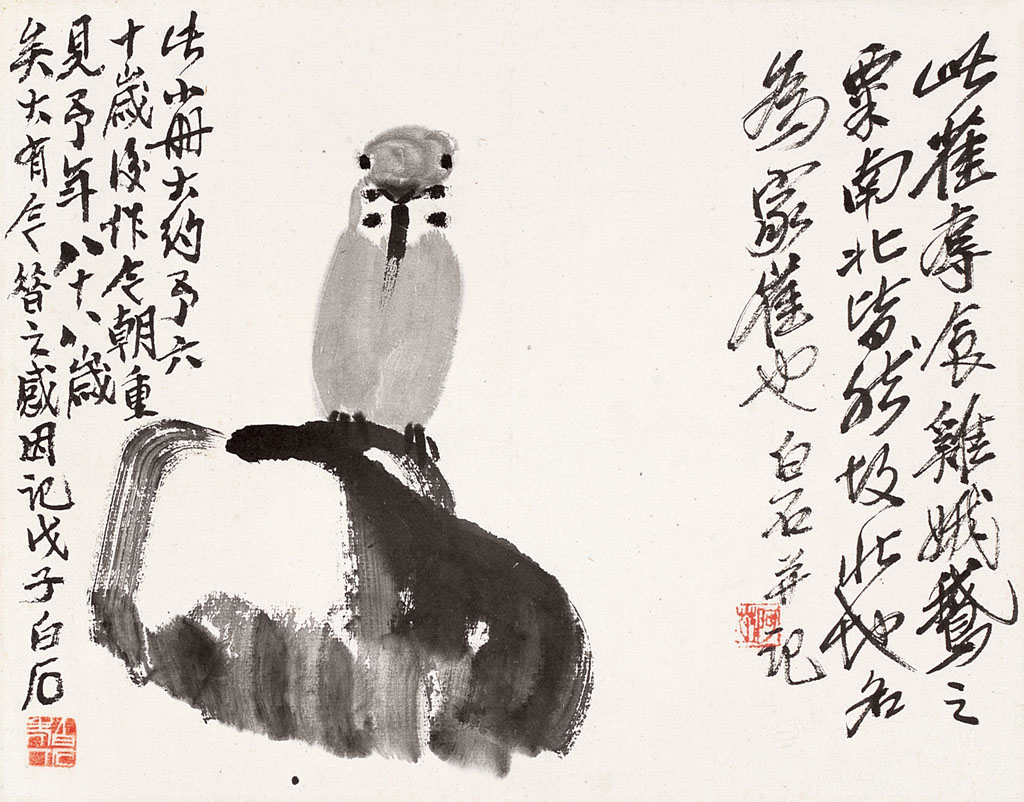 此雀奪食雞娥鵝之
粟南北皆然故北地名
為家雀也
白石并記
此小冊大約予六
十歲後作今朝重
見予年八十八歲
矣大有今昔之感因記戊子白石